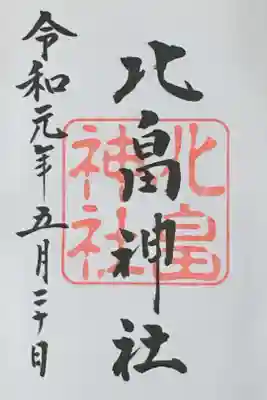 北畠神社
北畠
神社
令和元年五月二十日